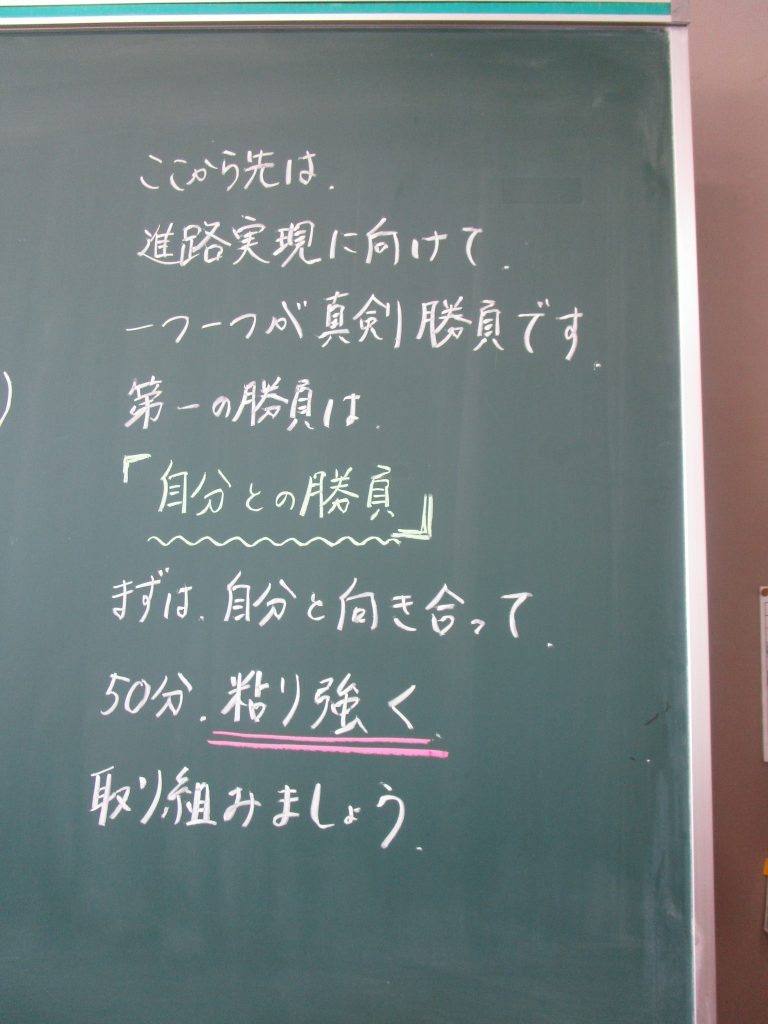 ここから先は、
進路実現に向けて、
一つ一つが真剣勝負です。
第一の勝負は、
『自分との勝負』
まずは、自分と向き合って、
50分、粘り強く、
取り組みましょう。